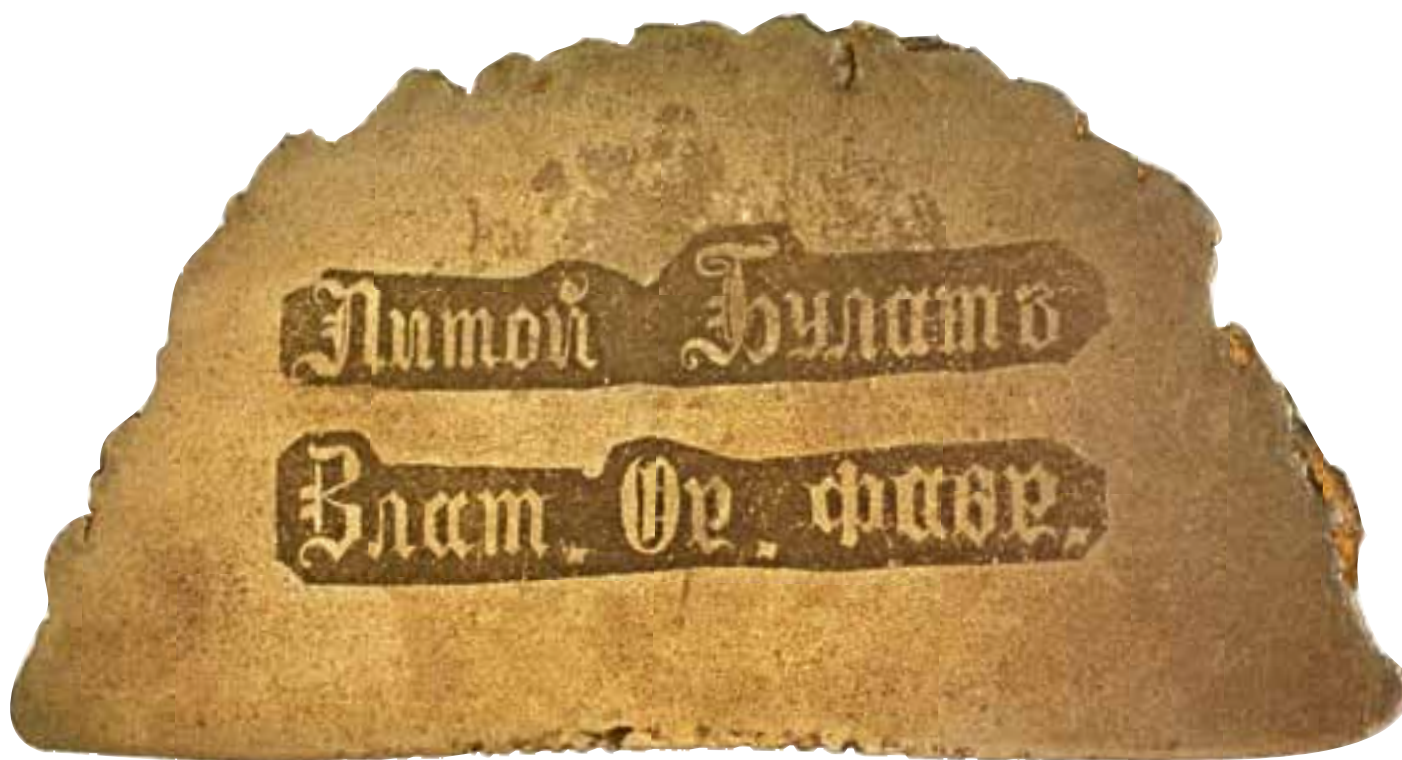 Литой Булатъ
Злат. Ор. фабр.